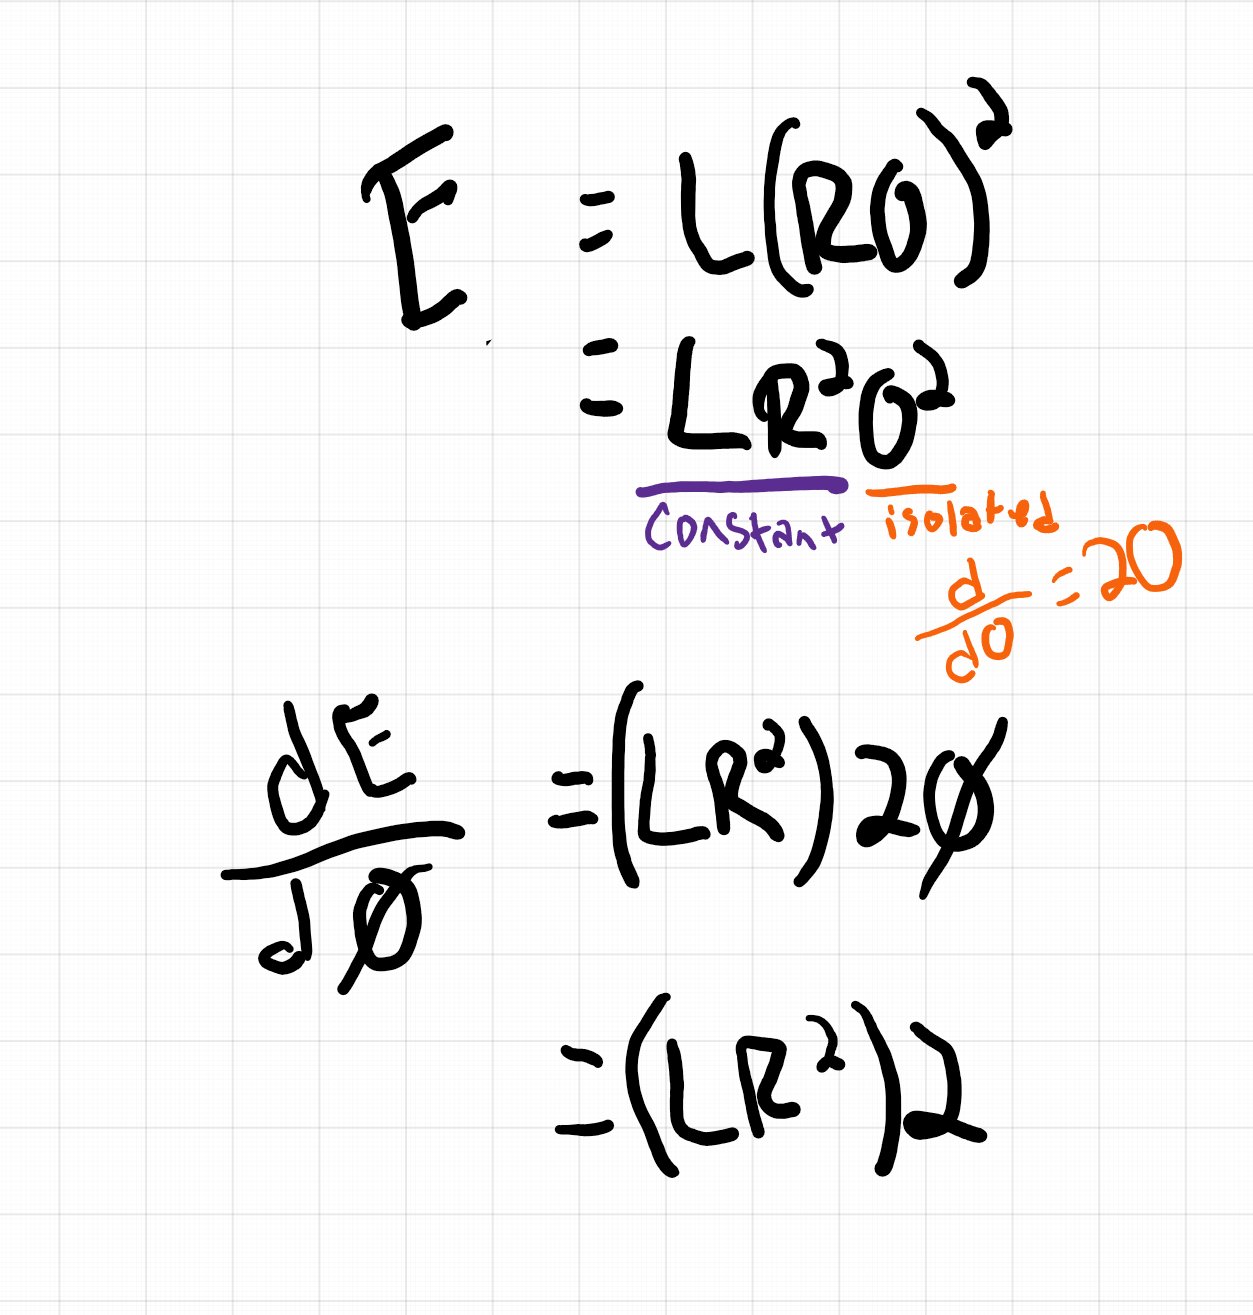 E = L(RO)²
= LR²O²
constant isolated
d/dO = 2O
dE/dO̸ = (LR²)2O̸
= (LR²)2